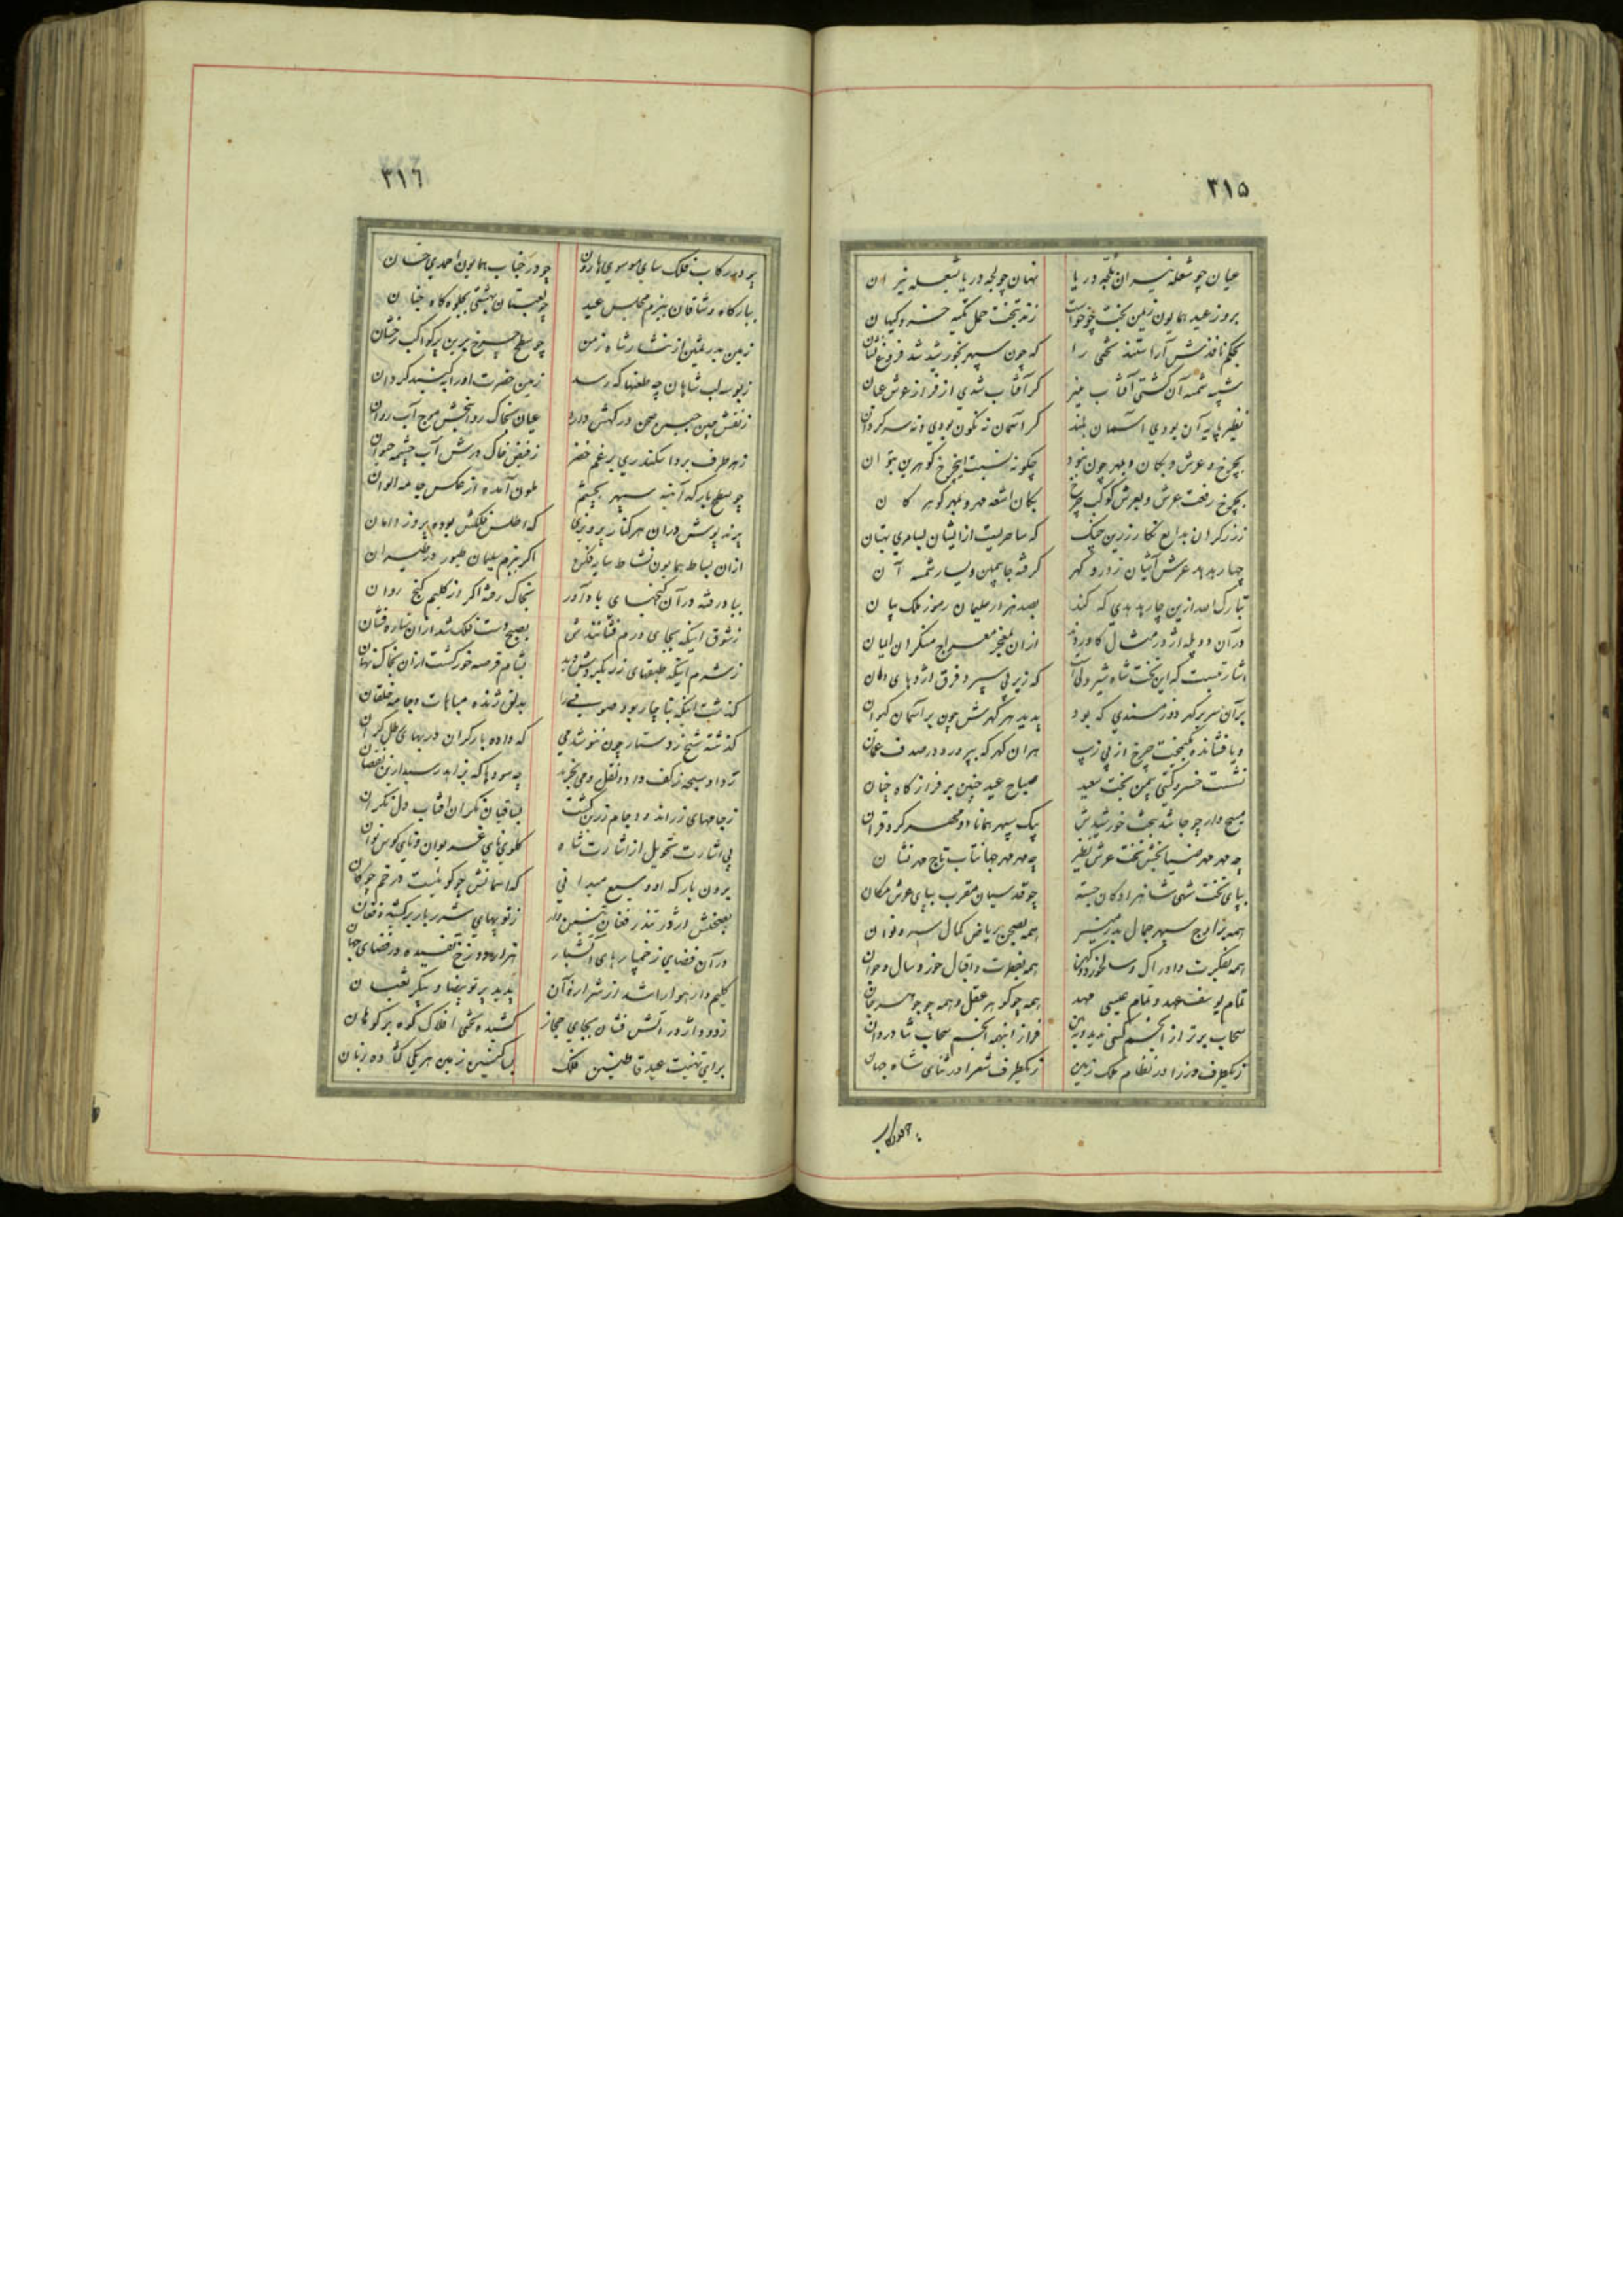 ٣١٥
عیان چو شعله نیران بلجه دریا نهان چو لجه دریا بشعله نیران
بروز عید همایون زیمن بخت چو خواست زند بتخت حمل تکیه خسرو کیهان
بحکم نافذش آراستند تختی را که چون سپهر بخورشید شد فروغ فشان
شبیه شمسه آن گشتی آفتاب منیر گر آفتاب شدی از فراز عرش عیان
نظیر پایه آن بودی آسمان بلند گر آسمان نه نگون بودی و نه سرگردان
بچرخ و عرش و بکان و بمهر چون نبود چگونه نسبت این چرخ گوهرین بتوان
بچرخ رفعت عرش و بعرش کوکب چرخ بکان اشعه مهر و بمهر گوهر کان
ززرگران بدایع نگار زرین چنگ که ساحریست از ایشان بسامری بهتان
چهار هدهد عرش آشیان ز در و گهر گرفته جا بیمین و یسار شمسه آن
تبارک الله ازین چار هدهدی که کند بصد هزار سلیمان رموز ملک بیان
در آن دو پله اژدر مثال کاوردند از آن بمعجز معراج منکران ایمان
اشارتیست که این تخت شاه شیردلیست که زیر پی سپرد فرق اژدهای دمان
بر آن سریر گهردوز مسندی که بود پدید هر گهرش چون بر آسمان کیوان
و یا فشانده بگنجت چرخ از پی زیب هر آن گهر که بپرورد در صدف عمان
نشست خسرو گیتی بیمن بخت سعید صباح عید چنین بر فراز گاه چنان
مسیح وار چو جا شد بتخت خورشیدش بیک سپهر همانا دو مهر کرد قران
چه مهر مهر ضیابخش تخت عرش نظیر چه مهر مهر جهانتاب تاج مهر نشان
بپای تخت شهی شاهزادگان بسته چو قدسیان مقرب بپای عرش مکان
همه بر اوج سپهر جمال بدر منیر همه بصحن ریاض کمال سرو نوان
همه بفکرت و ادراک و سالخورد و کهن همه بفطرت و اقبال خورد سال و جوان
تمام یوسف عهد و تمام عیسی مهد همه چو گوهر عقل و همه چو جوهر جان
سحاب برتر از انجم کسی ندید و ببین فراز اینهمه انجم سحاب شادروان
ز یکطرف وزرا در نظام ملک زمین ز یکطرف شعرا در ثنای شاه جهان
چو در رکاب
٣١٦
چو در رکاب فلک سای موسوی هارون چو در جناب همایون احمدی حسان
ببارگاه وشاقان ببزم مجلس عید چو لعبتان بهشتی بجلوه گاه جنان
زمین بدر ثمین از نثار شاه زمن چو سطح چرخ برین پر کواکب رخشان
ز بوسه لب شاهان چه طعنها که رسد زمین حضرت او را بگنبد گردان
ز نقش چین جبین صحن درگهش دارد عیان بخاک روانبخش موج آب روان
ز هر طرف بردا سکندری بر غم خضر ز فیض خاک درش آب چشمه حیوان
چو سطح بارگه آئینه سپهر بچشم ملون آمده از عکس جامه الوان
پرند پوش در آن هر کنار پرویزی که اطلس فلکش بوده پروز دامان
از آن بساط همایون نشاط سایه فکن اگر ببزم سلیمان طیور در طیران
بباد رفته در آن گنجهای بادآور بخاک رفته اگر از کلیم گنج روان
ز شوق اینکه بجای درم فشانندش بصبح دست فلک شد از آن ستاره فشان
ز شرم اینکه طبقهای زر بگیر و بش دید بشام قرصه خور گشت از آن بخاک نهان
گذشت اینکه بناچار بود صوفی را بدلق ژنده مباهات و جامه خلقان
گذشته شیخ ز دستار چون ننوشد می که داده بار گران در بهای رطل گران
ردا و سبحه ز کف داد و نقل و می بخرید چه سودها که بزاهد رسید ازین نقصان
ز جامهای زراندود جام زرین گشت بساقیان نگران آفتاب دل نگران
پی اشارت تحویل از اشارت شاه گلوی نای غریوان و نای کوس نوان
برون بارگه او وسیع میدانی که آسمانش چو گوئیست در خم چوگان
بصحنش اژدر تندر فغان تنین دل ز توپهای شرربار برکشیده فغان
در آن فضای ز خمپارهای آتشبار هزار دوزخ تفسیده در فضای جهان
کلیم وار هوا را شد از شراره آن پدید پرتو بیضا و پیکر ثعبان
ز دود اژدر آتش فشان بجای جهاز کشیده بختی افلاک کوه بر کوهان
برای تهنیت عید قاطنین فلک بساکنین زمین هر یکی گشاده زبان